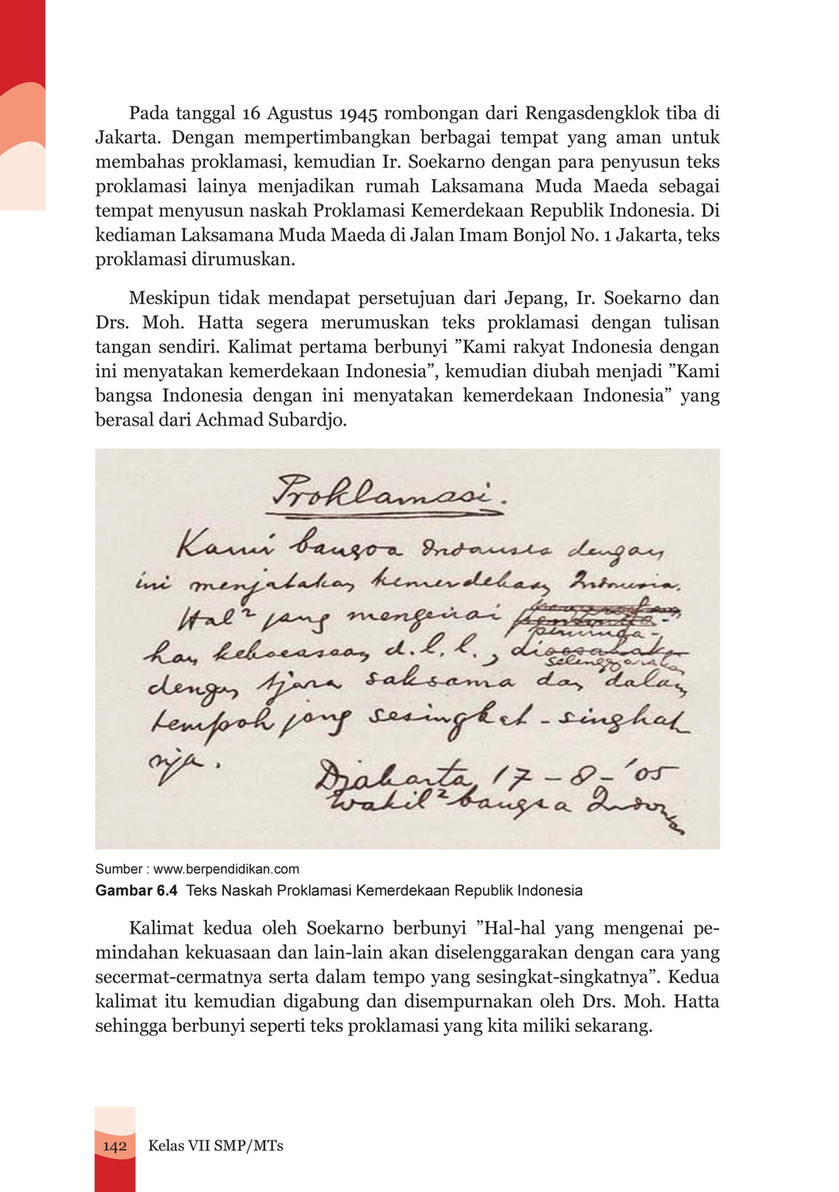 Pada tanggal 16 Agustus 1945 rombongan dari Rengasdengklok tiba di
Jakarta. Dengan mempertimbangkan berbagai tempat yang aman untuk
membahas proklamasi, kemudian Ir. Soekarno dengan para penyusun teks
proklamasi lainya menjadikan rumah Laksamana Muda Maeda sebagai
tempat menyusun naskah Proklamasi Kemerdekaan Republik Indonesia. Di
kediaman Laksamana Muda Maeda di Jalan Imam Bonjol No. 1 Jakarta, teks
proklamasi dirumuskan.
Meskipun tidak mendapat persetujuan dari Jepang, Ir. Soekarno dan
Drs. Moh. Hatta segera merumuskan teks proklamasi dengan tulisan
tangan sendiri. Kalimat pertama berbunyi ”Kami rakyat Indonesia dengan
ini menyatakan kemerdekaan Indonesia”, kemudian diubah menjadi ”Kami
bangsa Indonesia dengan ini menyatakan kemerdekaan Indonesia” yang
berasal dari Achmad Subardjo.
Proklamasi.
Kami bangsa Indonesia dengan
ini menjatakan kemerdekaan Indonesia.
Hal² jang mengenai
peminda-
han kekoeasaan d.l.l.,
selenggarakan
dengan tjara saksama dan dalam
tempoh jang sesingkat-singkat
nja.
Djakarta, 17-8-'05
Wakil² bangsa Indonesia
Sumber : www.berpendidikan.com
Gambar 6.4 Teks Naskah Proklamasi Kemerdekaan Republik Indonesia
Kalimat kedua oleh Soekarno berbunyi ”Hal-hal yang mengenai pe-
mindahan kekuasaan dan lain-lain akan diselenggarakan dengan cara yang
secermat-cermatnya serta dalam tempo yang sesingkat-singkatnya”. Kedua
kalimat itu kemudian digabung dan disempurnakan oleh Drs. Moh. Hatta
sehingga berbunyi seperti teks proklamasi yang kita miliki sekarang.
142 Kelas VII SMP/MTs